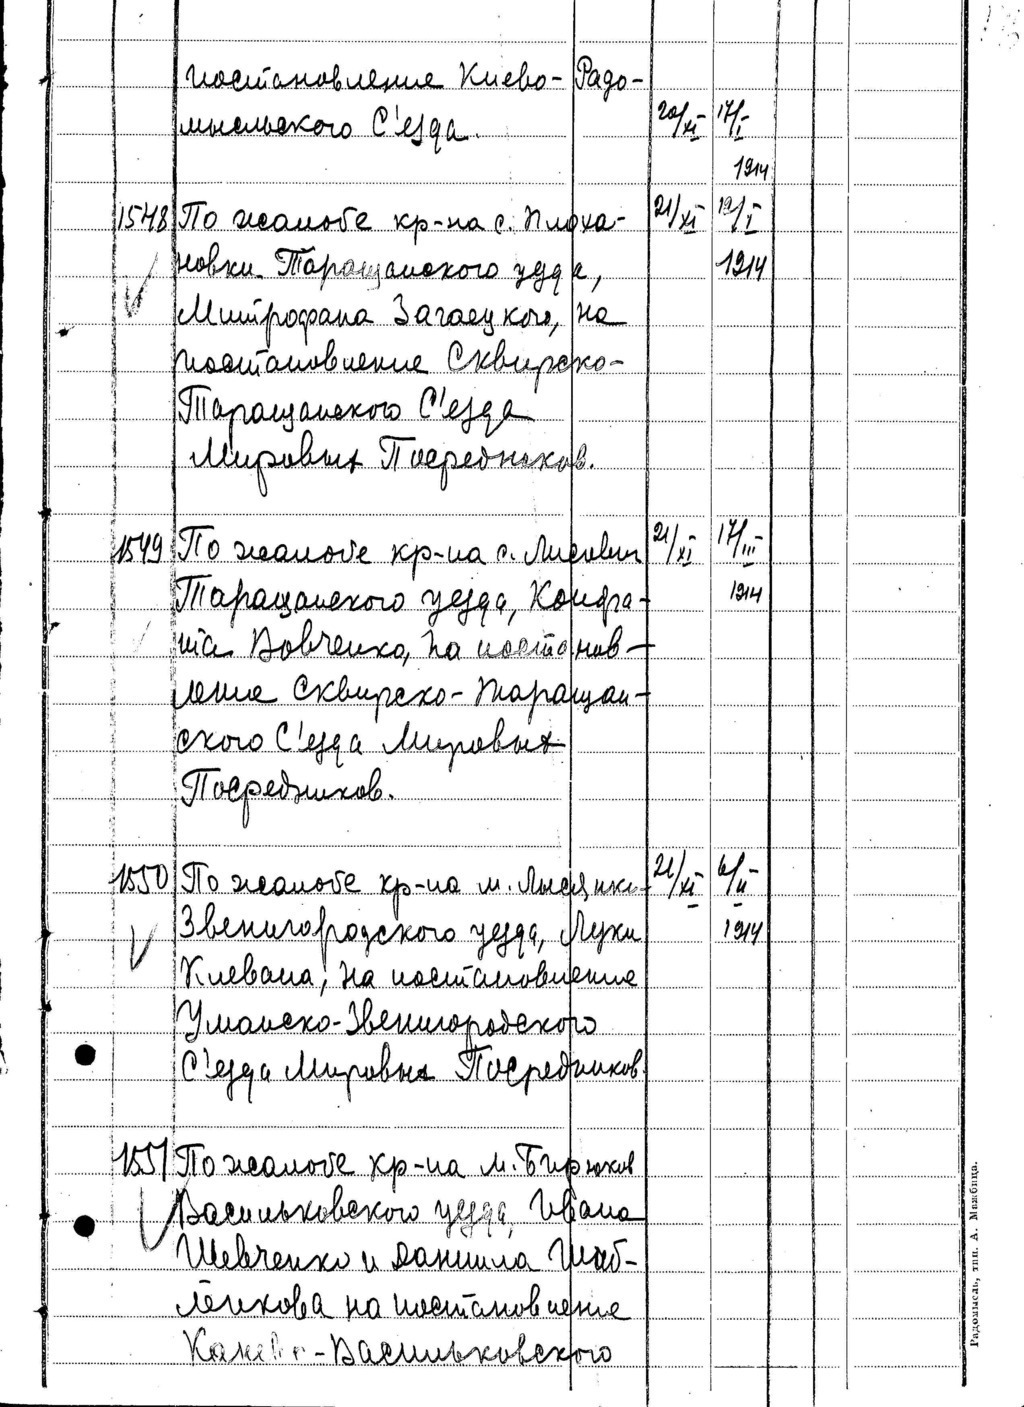 постановление Киево-Радо-
мысльского С'езда. 20/XI 17/I
1914
1548 По жалобе кр-на с. Плоха- 21/XI 19/I
новки Таращанского уезда, 1914
Митрофана Загаецкого, на
постановление Сквирско-
Таращанского С'езда
Мировых Посредников.
1549 По жалобе кр-на с. Лисович 21/XI 17/III
Таращанского уезда, Кондра- 1914
та Вовченко, на постанов-
ление Сквирско-Таращан-
ского С'езда Мировых
Посредников.
1550 По жалобе кр-на м. Лысянки 21/XI 6/II
Звенигородского уезда, Луки 1914
Клевана, на постановление
Уманско-Звенигородского
С'езда Мировых Посредников.
1551 По жалобе кр-на м. Бирюков
Васильковского уезда, Ивана
Шевченко и Даниила Шаб-
ленкова на постановление
Канево-Васильковского
Радомысль, тип. А. Мижбица.